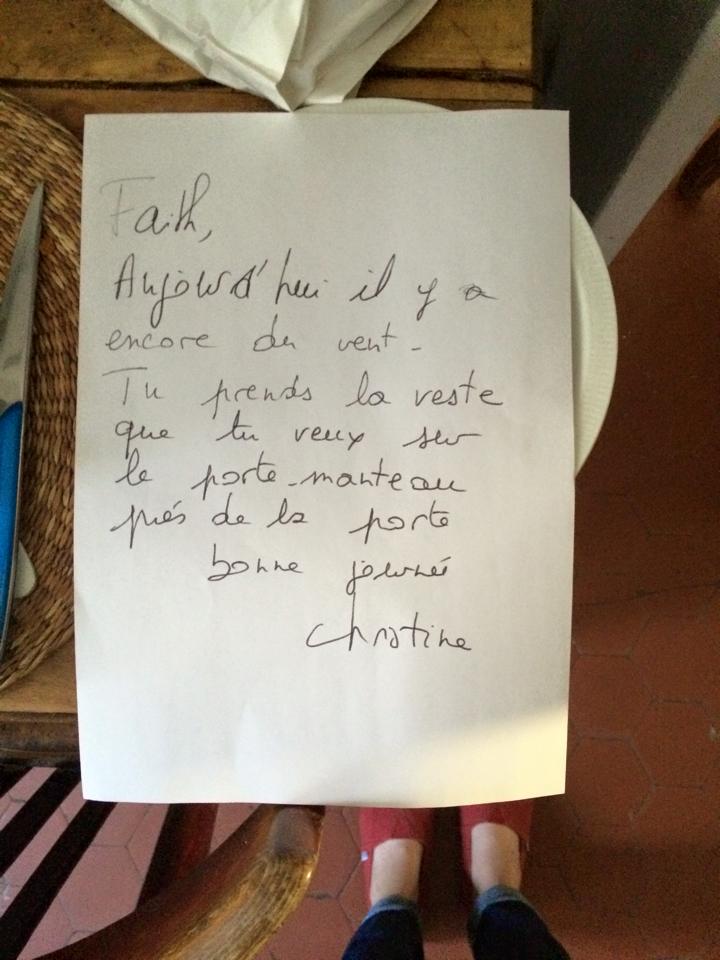 Faith,
Aujourd'hui il y a
encore du vent -
Tu prends la veste
que tu veux sur
le porte-manteau
près de la porte
bonne journée
Christine